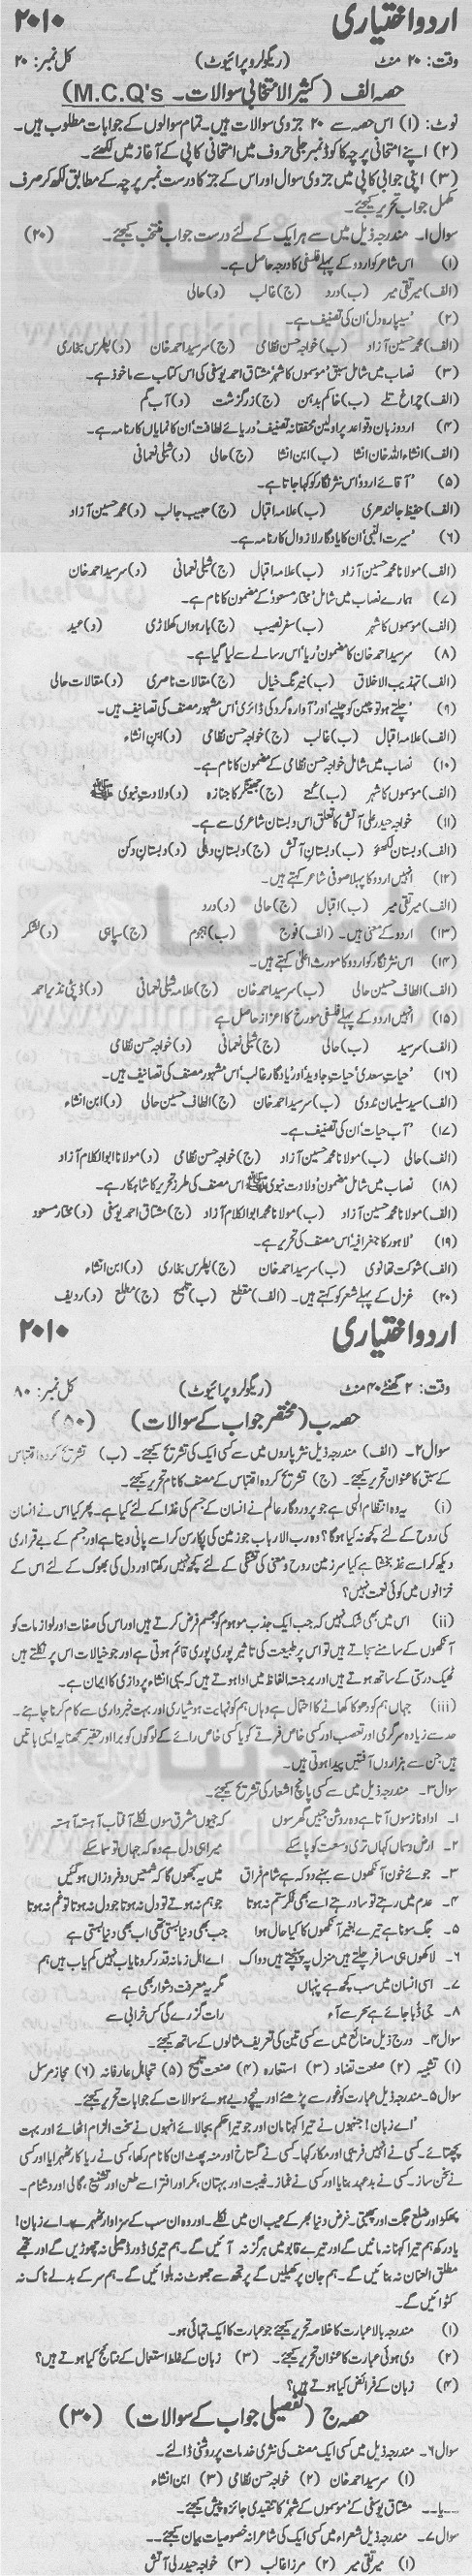 اردو اختیاری ۲۰۱۰
وقت: ۲۰ منٹ (ریگولر و پرائیوٹ) کل نمبر: ۲۰
حصہ الف (کثیر الانتخابی سوالات۔ M.C.Q's)
نوٹ: (۱) اس حصہ سے ۲۰ جزوی سوالات ہیں۔ تمام سوالوں کے جوابات مطلوب ہیں۔
(۲) اپنے امتحانی پرچہ کا کوڈ نمبر جلی حروف میں امتحانی کاپی کے آغاز میں لکھئے۔
(۳) اپنی جوابی کاپی میں جزوی سوال اور اس کے جز کا درست نمبر پرچہ کے مطابق لکھ کر صرف
مکمل جواب تحریر کیجئے۔
سوال۱۔ مندرجہ ذیل میں سے ہر ایک کے لئے درست جواب منتخب کیجئے۔ (۲۰)
(۱) اس شاعر کو اردو کے پہلے فلسفی کا درجہ حاصل ہے۔
(الف) میر تقی میر (ب) درد (ج) غالب (د) حالی
(۲) 'سیپارہ دل' ان کی تصنیف ہے۔
(الف) محمد حسین آزاد (ب) خواجہ حسن نظامی (ج) سرسید احمد خان (د) پطرس بخاری
(۳) نصاب میں شامل سبق 'موسموں کا شہر' مشتاق احمد یوسفی کی اس کتاب سے ماخوذ ہے۔
(الف) چراغ تلے (ب) خاکم بدہن (ج) زرگزشت (د) آب گم
(۴) اردو زبان و قواعد پر اولین محققانہ تصنیف 'دریائے لطافت' ان کا نمایاں کارنامہ ہے۔
(الف) انشاء اللہ خان انشا (ب) ابن انشا (ج) حالی (د) شبلی نعمانی
(۵) 'آقائے اردو' اس نثر نگار کو کہا جاتا ہے۔
(الف) حفیظ جالندھری (ب) علامہ اقبال (ج) حبیب جالب (د) محمد حسین آزاد
(۶) 'سیرت النبی' ان کا یادگار لازوال کارنامہ ہے۔
(الف) مولانا محمد حسین آزاد (ب) علامہ اقبال (ج) شبلی نعمانی (د) سرسید احمد خان
(۷) ہمارے نصاب میں شامل 'مختار مسعود' کے مضمون کا نام ہے۔
(الف) موسموں کا شہر (ب) سفر نصیب (ج) بارہواں کھلاڑی (د) عید
(۸) سرسید احمد خان کا مضمون 'ریا' اس رسالے سے لیا گیا ہے۔
(الف) تہذیب الاخلاق (ب) نیرنگ خیال (ج) مقالات ناصری (د) مقالات حالی
(۹) 'چلتے ہو تو چین کو چلیے' اور 'آوارہ گرد کی ڈائری' اس مشہور مصنف کی تصانیف ہیں۔
(الف) علامہ اقبال (ب) غالب (ج) خواجہ حسن نظامی (د) ابن انشاء
(۱۰) نصاب میں شامل خواجہ حسن نظامی کے مضمون کا نام ہے۔
(الف) موسموں کا شہر (ب) کتے (ج) جھینگر کا جنازہ (د) ولادت نبوی ﷺ
(۱۱) خواجہ حیدر علی آتش کا تعلق اس دبستان شاعری سے ہے۔
(الف) دبستان لکھنؤ (ب) دبستان آتش (ج) دبستان دہلی (د) دبستان دکن
(۱۲) انہیں اردو کا پہلا صوفی شاعر کہتے ہیں۔
(الف) میر تقی میر (ب) اقبال (ج) حالی (د) درد
(۱۳) اردو کے معنی ہیں۔ (الف) فوج (ب) ہجوم (ج) سپاہی (د) لشکر
(۱۴) اس نثر نگار کو اردو کا مورث اعلیٰ کہتے ہیں۔
(الف) الطاف حسین حالی (ب) سرسید احمد خان (ج) علامہ شبلی نعمانی (د) ڈپٹی نذیر احمد
(۱۵) انہیں اردو کے پہلے فلسفی مورخ کا اعزاز حاصل ہے
(الف) سرسید (ب) حالی (ج) شبلی نعمانی (د) خواجہ حسن نظامی
(۱۶) 'حیات سعدی' 'حیات جاوید' اور 'یادگار غالب' اس مشہور مصنف کی تصانیف ہیں۔
(الف) سید سلیمان ندوی (ب) سرسید احمد خان (ج) الطاف حسین حالی (د) ابن انشاء
(۱۷) 'آب حیات' ان کی تصنیف ہے۔
(الف) حالی (ب) مولانا محمد حسین آزاد (ج) خواجہ حسن نظامی (د) مولانا ابوالکلام آزاد
(۱۸) نصاب میں شامل مضمون 'ولادت نبوی ﷺ' اس مصنف کی طرز تحریر کا شاہکار ہے۔
(الف) مولانا محمد حسین آزاد (ب) مولانا محمد ابوالکلام آزاد (ج) مشتاق احمد یوسفی (د) مختار مسعود
(۱۹) 'لاہور کا جغرافیہ' اس مصنف کی تحریر ہے۔
(الف) شوکت تھانوی (ب) سرسید احمد خان (ج) پطرس بخاری (د) ابن انشاء
(۲۰) غزل کے پہلے شعر کو کہتے ہیں۔ (الف) مقطع (ب) تلمیح (ج) مطلع (د) ردیف
اردو اختیاری ۲۰۱۰
وقت: ۲ گھنٹے ۴۰ منٹ (ریگولر و پرائیوٹ) کل نمبر: ۸۰
حصہ ب (مختصر جواب کے سوالات) (۵۰)
سوال۲۔ (الف) مندرجہ ذیل نثر پاروں میں سے کسی ایک کی تشریح کیجئے۔ (ب) تشریح کردہ اقتباس
کے سبق کا عنوان تحریر کیجئے۔ (ج) تشریح کردہ اقتباس کے مصنف کا نام تحریر کیجئے۔
(i) یہ وہ انتظام الٰہی ہے جو پروردگار عالم نے انسان کے جسم کی غذا کے لئے کیا ہے۔ پھر کیا اس نے انسان
کی روح کے لئے کچھ نہ کیا ہوگا؟ وہ رب الارباب جو زمین کی پکار سن کر اسے پانی دیتا ہے اور جسم کے بے قراری
دیکھ کر اسے غذا بخشتا ہے کیا سرزمین روح و معنی کی تشنگی کے لئے کچھ نہیں رکھتا اور دل کی بھوک کے لئے اس کے
خزانوں میں کوئی نعمت نہیں؟
(ii) اس میں بھی شک نہیں کہ جب ایک جذب موہوم کو مجسم فرض کرتے ہیں اور اس کی صفات اور لوازمات کو
آنکھوں کے سامنے سجاتے ہیں تو اس پر طبیعت کی تاثیر پوری پوری قائم ہوتی ہے اور جو خیالات اس پر نکلتے ہیں
ٹھیک درستی کے ساتھ ہوتے ہیں اور برجستہ الفاظ میں ادا ہوتے ہیں کہ یہی انشاء پردازی کا ایمان ہے۔
(iii) جہاں ہم کو دھوکا کھانے کا احتمال ہے وہاں ہم کو نہایت ہوشیاری اور بہت خبرداری سے کام کرنا چاہئے۔
حد سے زیادہ سرگرمی اور تعصب اور کسی خاص فرقے کو یا کسی خاص رائے کے لوگوں کو برا اور حقیر سمجھنا یہ ایسی باتیں
ہیں جن سے ہزاروں آفتیں پیدا ہوتی ہیں۔
سوال۳۔ مندرجہ ذیل میں سے کسی پانچ اشعار کی تشریح کیجئے۔
۱۔ ادا و ناز سوں آتا ہے وہ روشن جبیں گھر سوں کہ جیوں مشرق سوں نکلے آفتاب آہستہ آہستہ
۲۔ ارض و سماں کہاں تری وسعت کو پا سکے میرا ہی دل ہے وہ کہ جہاں تو سما سکے
۳۔ جوئے خون آنکھوں سے بہنے دو کہ ہے شام فراق میں یہ سمجھوں گا کہ شمعیں دو فروزاں ہوگئیں
۴۔ عدم میں رہتے تو شاد رہتے اسے بھی فکر ستم نہ ہوتا جو ہم نہ ہوتے تو دل نہ ہوتا جو دل نہ ہوتا تو غم نہ ہوتا
۵۔ جگ سونا ہے تیرے بغیر آنکھوں کا کیا حال ہوا جب بھی دنیا بستی تھی اب بھی دنیا بستی ہے
۶۔ لاکھوں ہی مسافر چلتے ہیں منزل پہ پہنچتے ہیں دو اک اے اہل زمانہ قدر کرو نایاب نہیں کم یاب ہیں ہم
۷۔ اسی انسان میں سب کچھ ہے پنہاں مگر یہ معرفت دشوار بھی ہے
۸۔ جی ڈبا جائے ہے سحر سے آہ رات گزرے گی کس خرابی سے
سوال۴۔ درج ذیل صنائع میں سے کسی تین کی تعریف مع مثالوں کے ساتھ کیجئے۔
(۱) تشبیہ (۲) صنعت تضاد (۳) استعارہ (۴) صنعت تلمیح (۵) تجاہل عارفانہ (۶) مجاز مرسل
سوال۵۔ مندرجہ ذیل عبارت کو غور سے پڑھئے اور نیچے دیے ہوئے سوالات کے جوابات تحریر کیجئے۔
'اے زبان! جنہوں نے تیرا کہنا مان اور جو تیرا حکم بجالائے انہوں نے سخت الزام اٹھائے اور بہت
پچھتائے۔ کسی نے انہیں فریبی اور مکار کہا۔ کسی نے گستاخ اور منہ پھٹ ان کا نام رکھا، کسی نے ریا کار ٹھہرایا اور کسی
نے سخن ساز۔ کسی نے بدعہد بنایا اور کسی نے غماز۔ غیبت اور بہتان، مکر اور افترا سے طعن اور تشنیع، گالی اور دشنام۔
پھکڑ اور ضلع جگت اور پھبتی۔ غرض دنیا بھر کے عیب ان میں نکلے۔ اور وہ ان سب کے سزاوار ٹھہرے۔ اے زبان!
یاد رکھ ہم تیرا کہنا نہ مانیں گے اور تیرے قابو میں ہرگز نہ آئیں گے۔ ہم تیری ڈور ڈھیلی نہ چھوڑیں گے اور تجھے
مطلق العنان نہ بنائیں گے۔ ہم جان پر کھیلیں گے پر تجھ سے جھوٹ نہ بلوائیں گے۔ ہم سر کے بدلے ناک نہ
کٹوائیں گے۔
(۱) مندرجہ بالا عبارت کا خلاصہ تحریر کیجئے جو عبارت کا ایک تہائی ہو۔
(۲) دی ہوئی عبارت کا عنوان تحریر کیجئے۔ (۳) زبان کے غلط استعمال کے نتائج کیا ہوتے ہیں؟
(۴) زبان کے فرائض کیا ہوتے ہیں؟
حصہ ج (تفصیلی جواب کے سوالات) (۳۰)
سوال۶۔ مندرجہ ذیل میں سے کسی ایک مصنف کی نثری خدمات پر روشنی ڈالئے۔
(۱) سرسید احمد خان (۲) خواجہ حسن نظامی (۳) ابن انشاء
--یا-- مشتاق یوسفی کے 'موسموں کے شہر' کا تنقیدی جائزہ پیش کیجئے۔
سوال۷۔ مندرجہ ذیل شعراء میں سے کسی ایک کی شاعرانہ خصوصیات بیان کیجئے۔--
(۱) میر تقی میر (۲) مرزا غالب (۳) خواجہ حیدر لی آتش